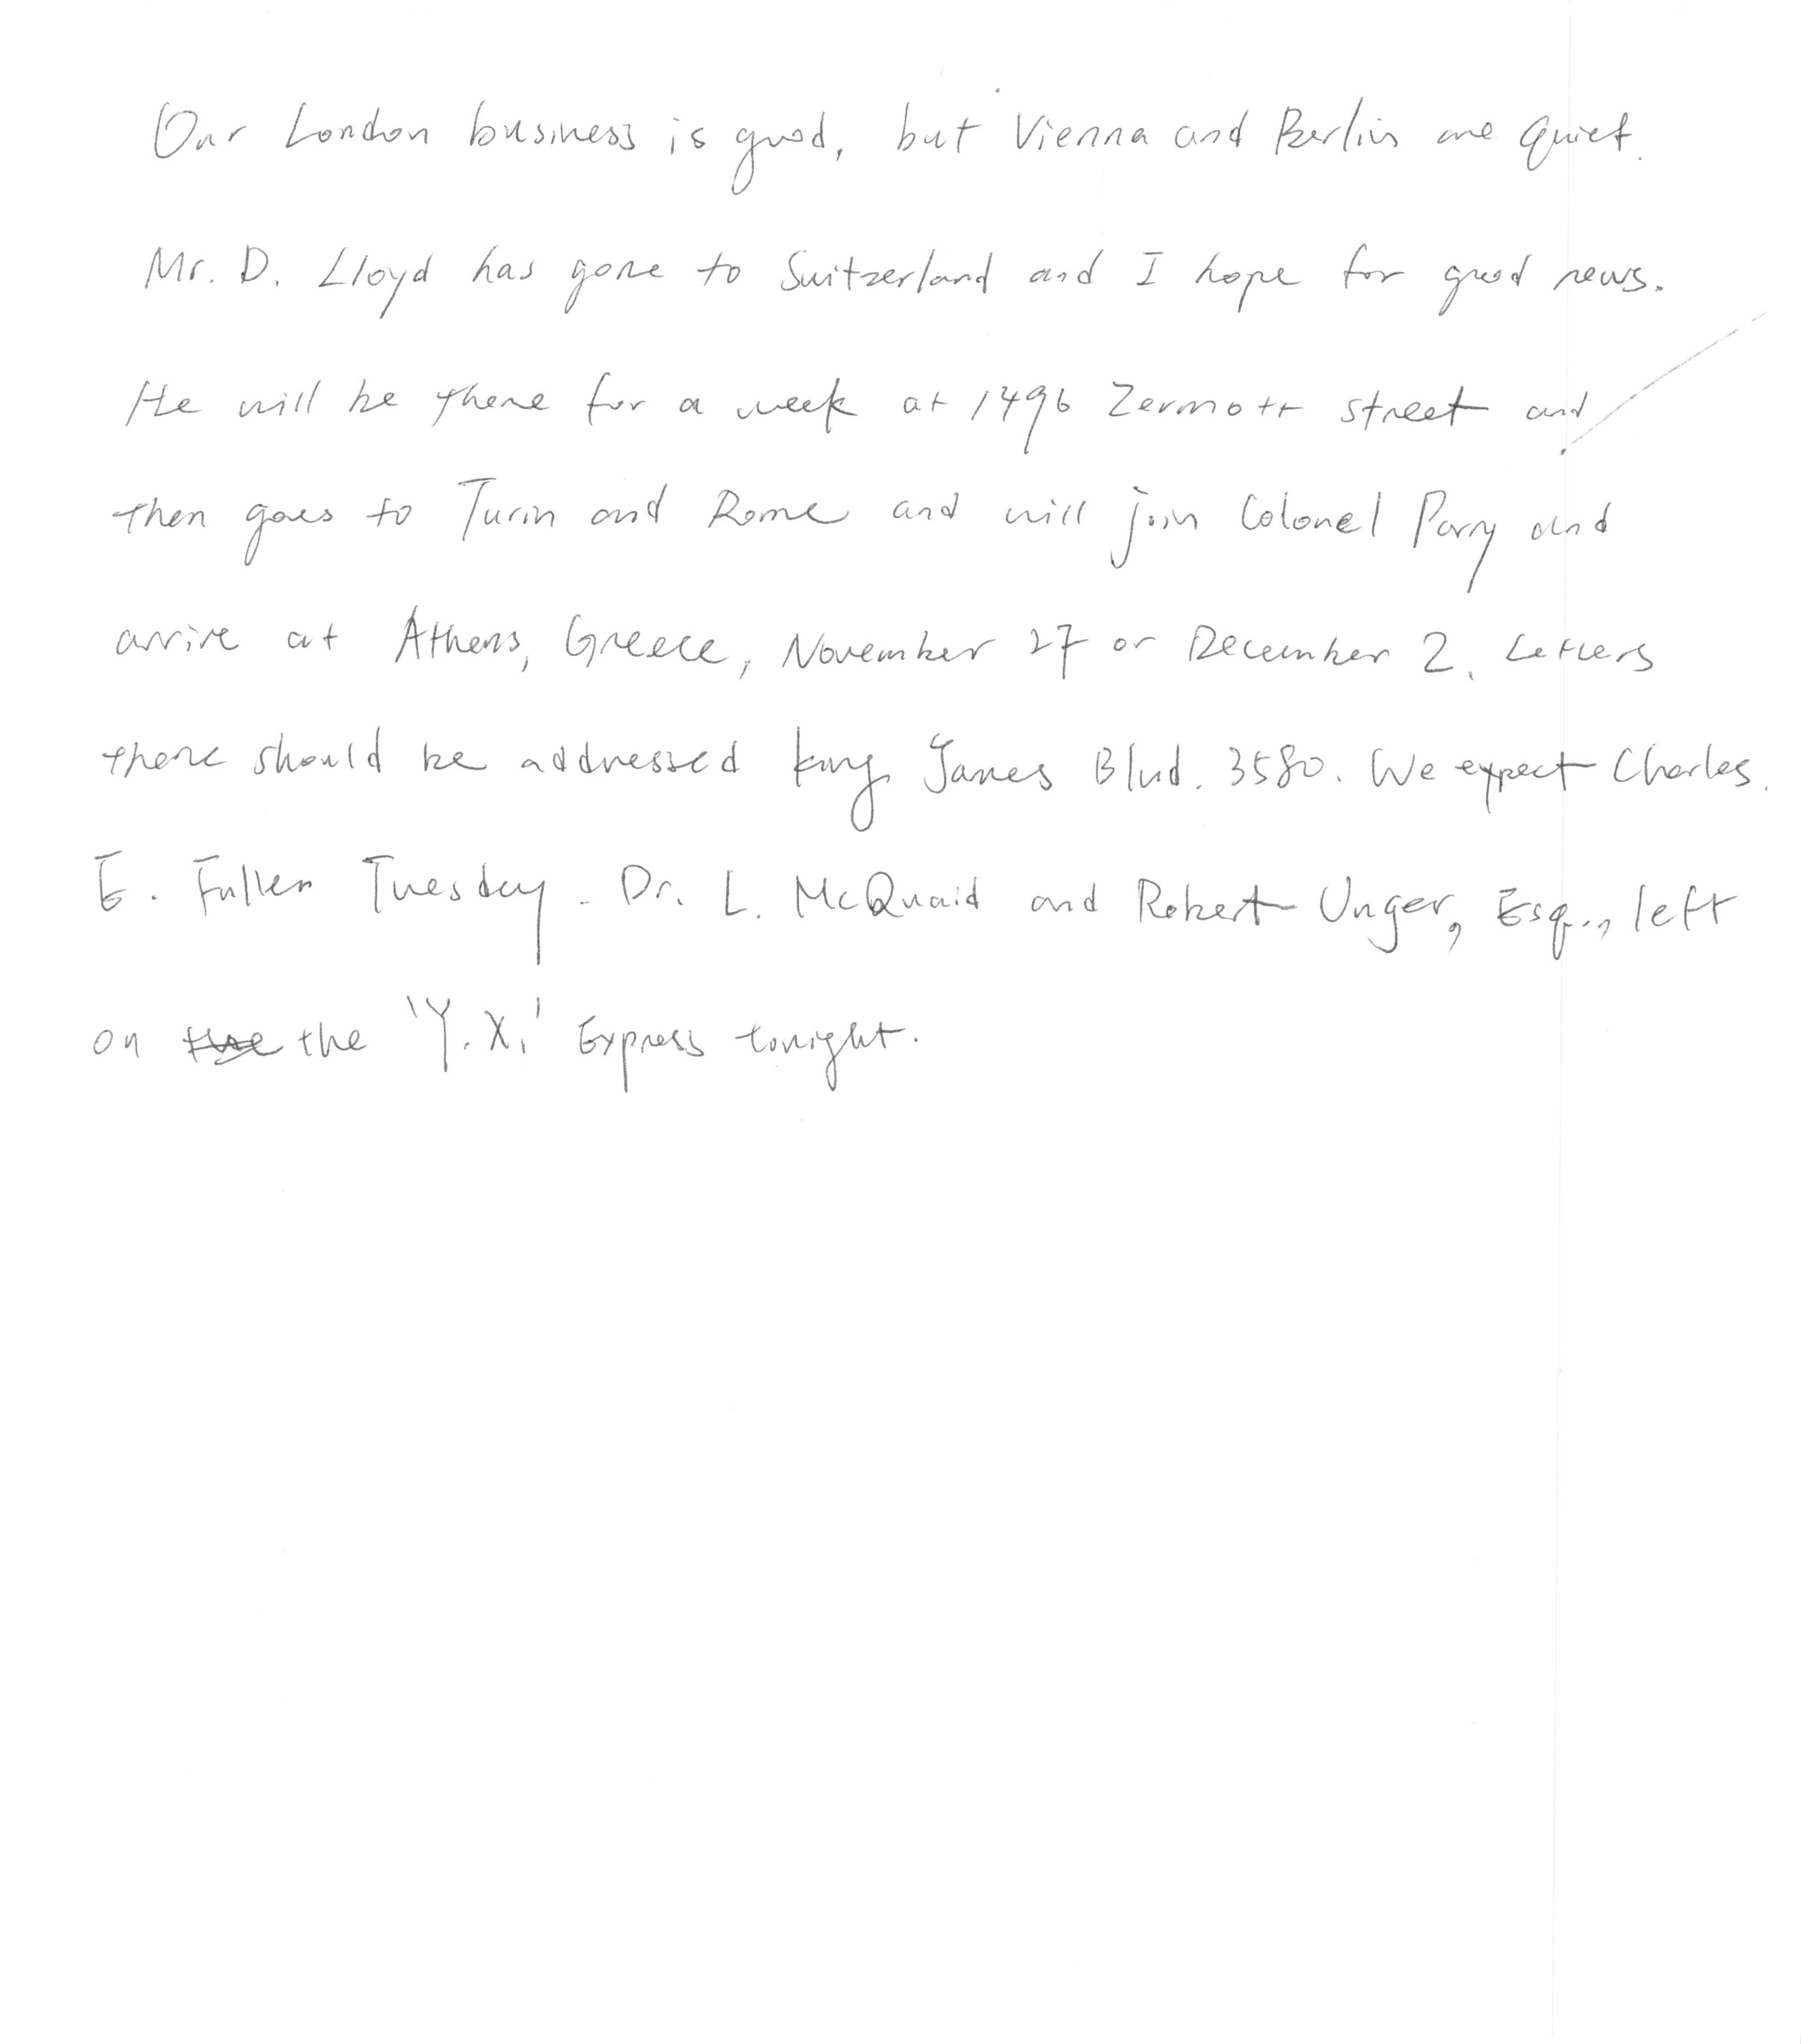 Our London business is good, but Vienna and Berlin are quiet.
Mr. D. Lloyd has gone to Switzerland and I hope for good news.
He will be there for a week at 1496 Zermott street and
then goes to Turin and Rome and will join Colonel Parry and
arrive at Athens, Greece, November 27 or December 2. Letters
there should be addressed king James Blvd. 3580. We expect Charles
E. Fuller Tuesday. Dr. L. McQuaid and Robert Unger, Esq., left
on the 'Y.X.' Express tonight.